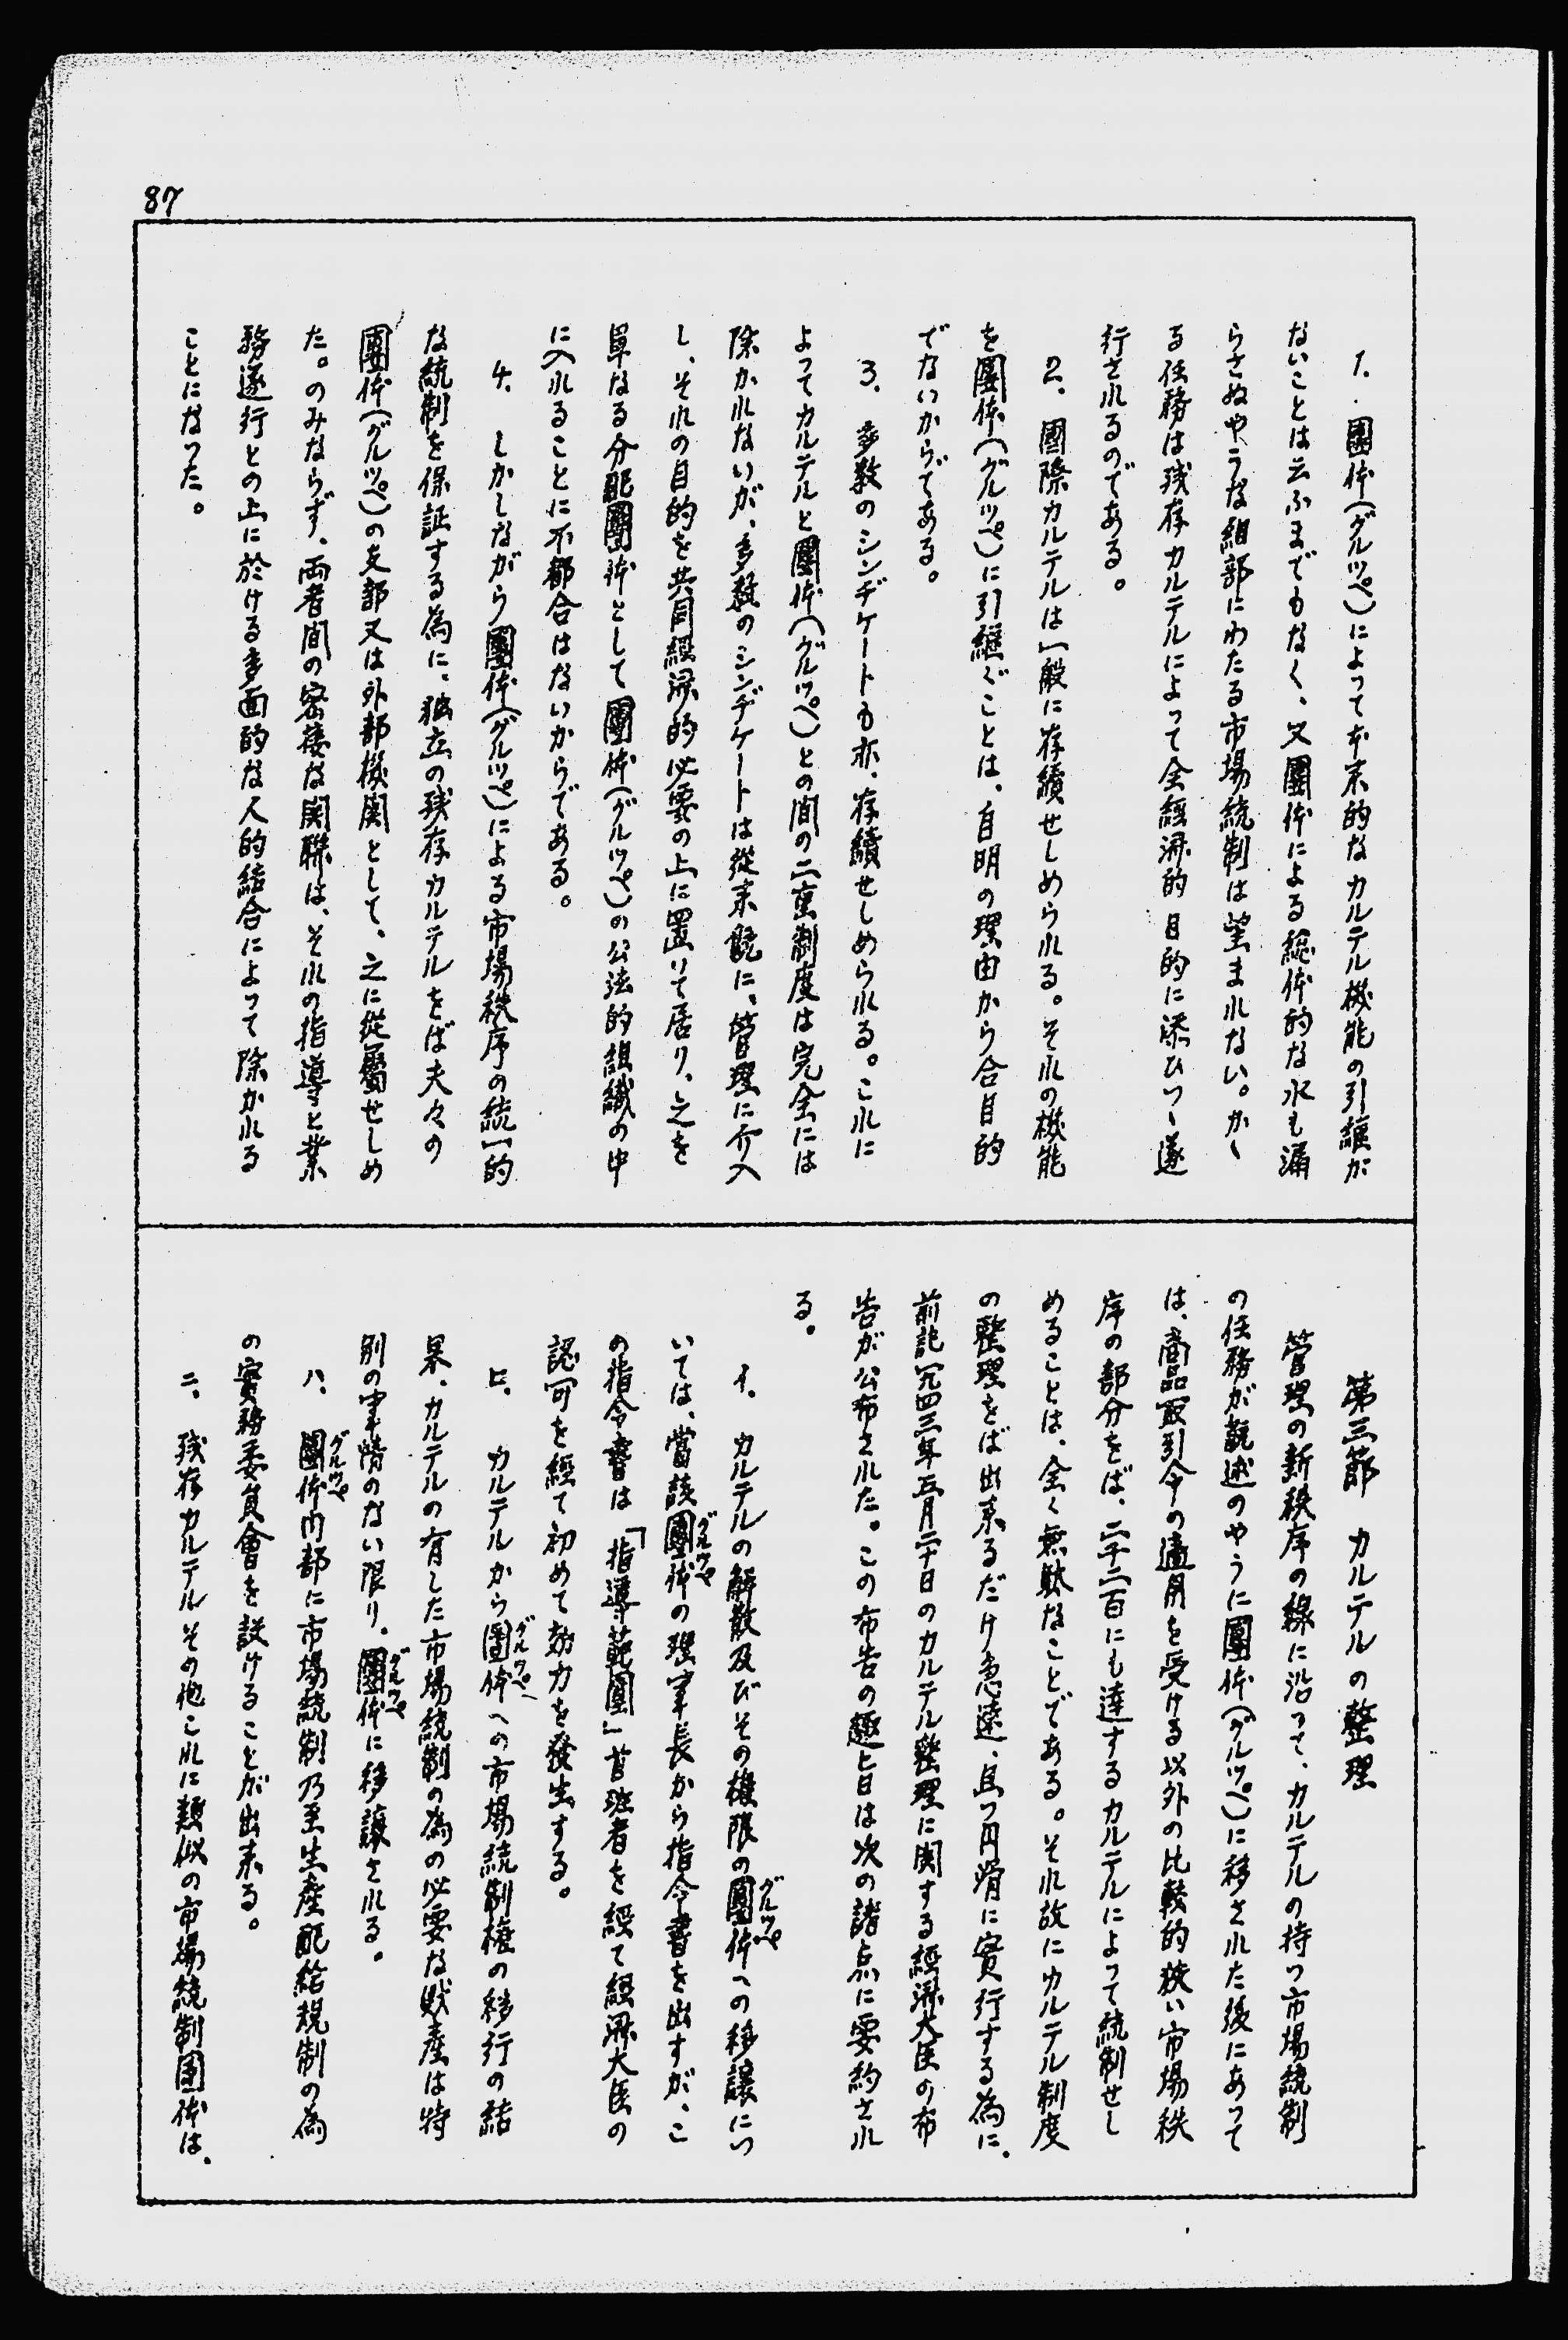 87
1. 團体(グルッペ)によって本末的なカルテル機能の引継が
ないことは云ふまでもなく、又團体による総体的な水も漏
らさぬやうな細部にわたる市場統制は望まれない。かゝ
る任務は残存カルテルによって全経済的目的に添ひつゝ遂
行されるのである。
2. 國際カルテルは一般に存續せしめられる。それの機能
を團体(グルッペ)に引継ぐことは、自明の理由から合目的
でないからである。
3. 多数のシンヂケートも亦、存續せしめられる。これに
よってカルテルと團体(グルッペ)との間の二重制度は完全には
除かれないが、多数のシンヂケートは從来既に、管理に介入
し、それの目的を共同経済的必要の上に置いて居り、之を
単なる分配團体として團体(グルッペ)の公法的組織の中
に入れることに不都合はないからである。
4. しかしながら團体(グルッペ)による市場秩序の統一的
な統制を保証する為に、独立の残存カルテルをば夫々の
團体(グルッペ)の支部又は外部機関として、之に從屬せしめ
た。のみならず、両者間の密接な関聯は、それの指導と業
務遂行との上に於ける多面的な人的結合によって除かれる
ことになった。
第三節 カルテルの整理
管理の新秩序の線に沿って、カルテルの持つ市場統制
の任務が既述のやうに團体(グルッペ)に移された後にあって
は、商品取引令の適用を受ける以外の比較的狭い市場秩
序の部分をば、二千二百にも達するカルテルによって統制せし
めることは、全く無駄なことである。それ故にカルテル制度
の整理をば出来るだけ急速、且つ円滑に實行する為に、
前記一九四三年五月二十日のカルテル整理に関する経済大臣の布
告が公布された。この布告の趣旨は次の諸点に要約され
る。
イ. カルテルの解散及びその権限の團体グルッペへの移譲につ
いては、當該團体グルッペの理事長から指令書を出すが、こ
の指令書は「指導範圍」首班者を経て経済大臣の
認可を経て初めて効力を發生する。
ロ. カルテルから團体グルッペへの市場統制権の移行の結
果、カルテルの有した市場統制の為の必要な財産は特
別の事情のない限り、團体グルッペに移譲される。
ハ. 團体グルッペ内部に市場統制乃至生産配給規制の為
の實務委員會を設けることが出来る。
ニ. 残存カルテルその他これに類似の市場統制團体は、